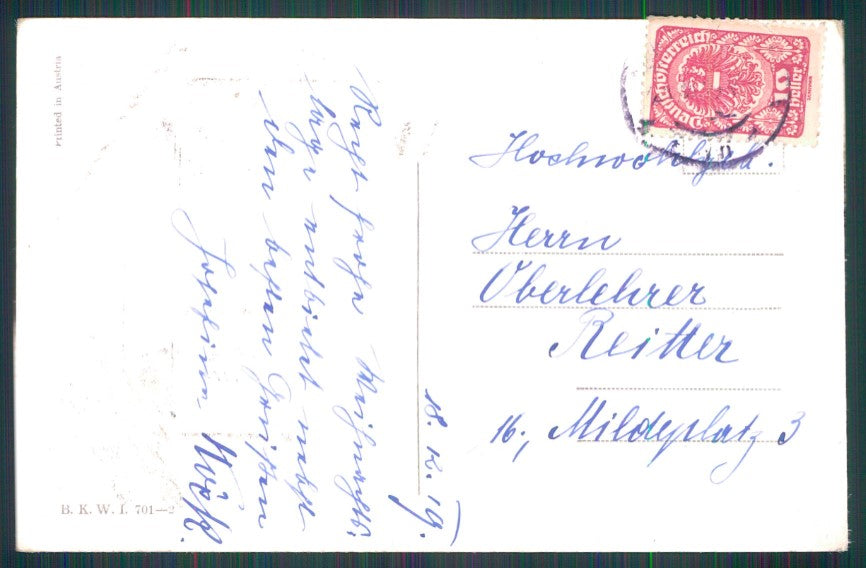 Printed in Austria
Recht frohe Weihnachts-
tage entbietet nebst
den besten Grüßen
Josefine
18. 12. 19.
B. K. W. I. 701—2
Deutschösterreich
10 Heller
Hochwohlgeb.
Herrn
Oberlehrer
Reitter
16., Mildeplatz 3